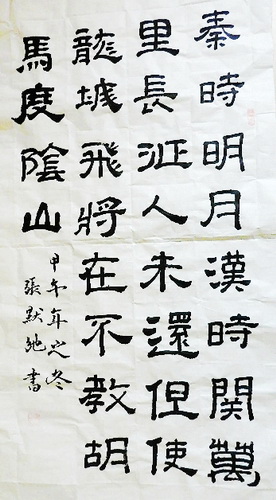 秦時明月漢時関萬
里長征人未還但使
龍城飛將在不教胡
馬度陰山
甲午年之冬
張默馳書